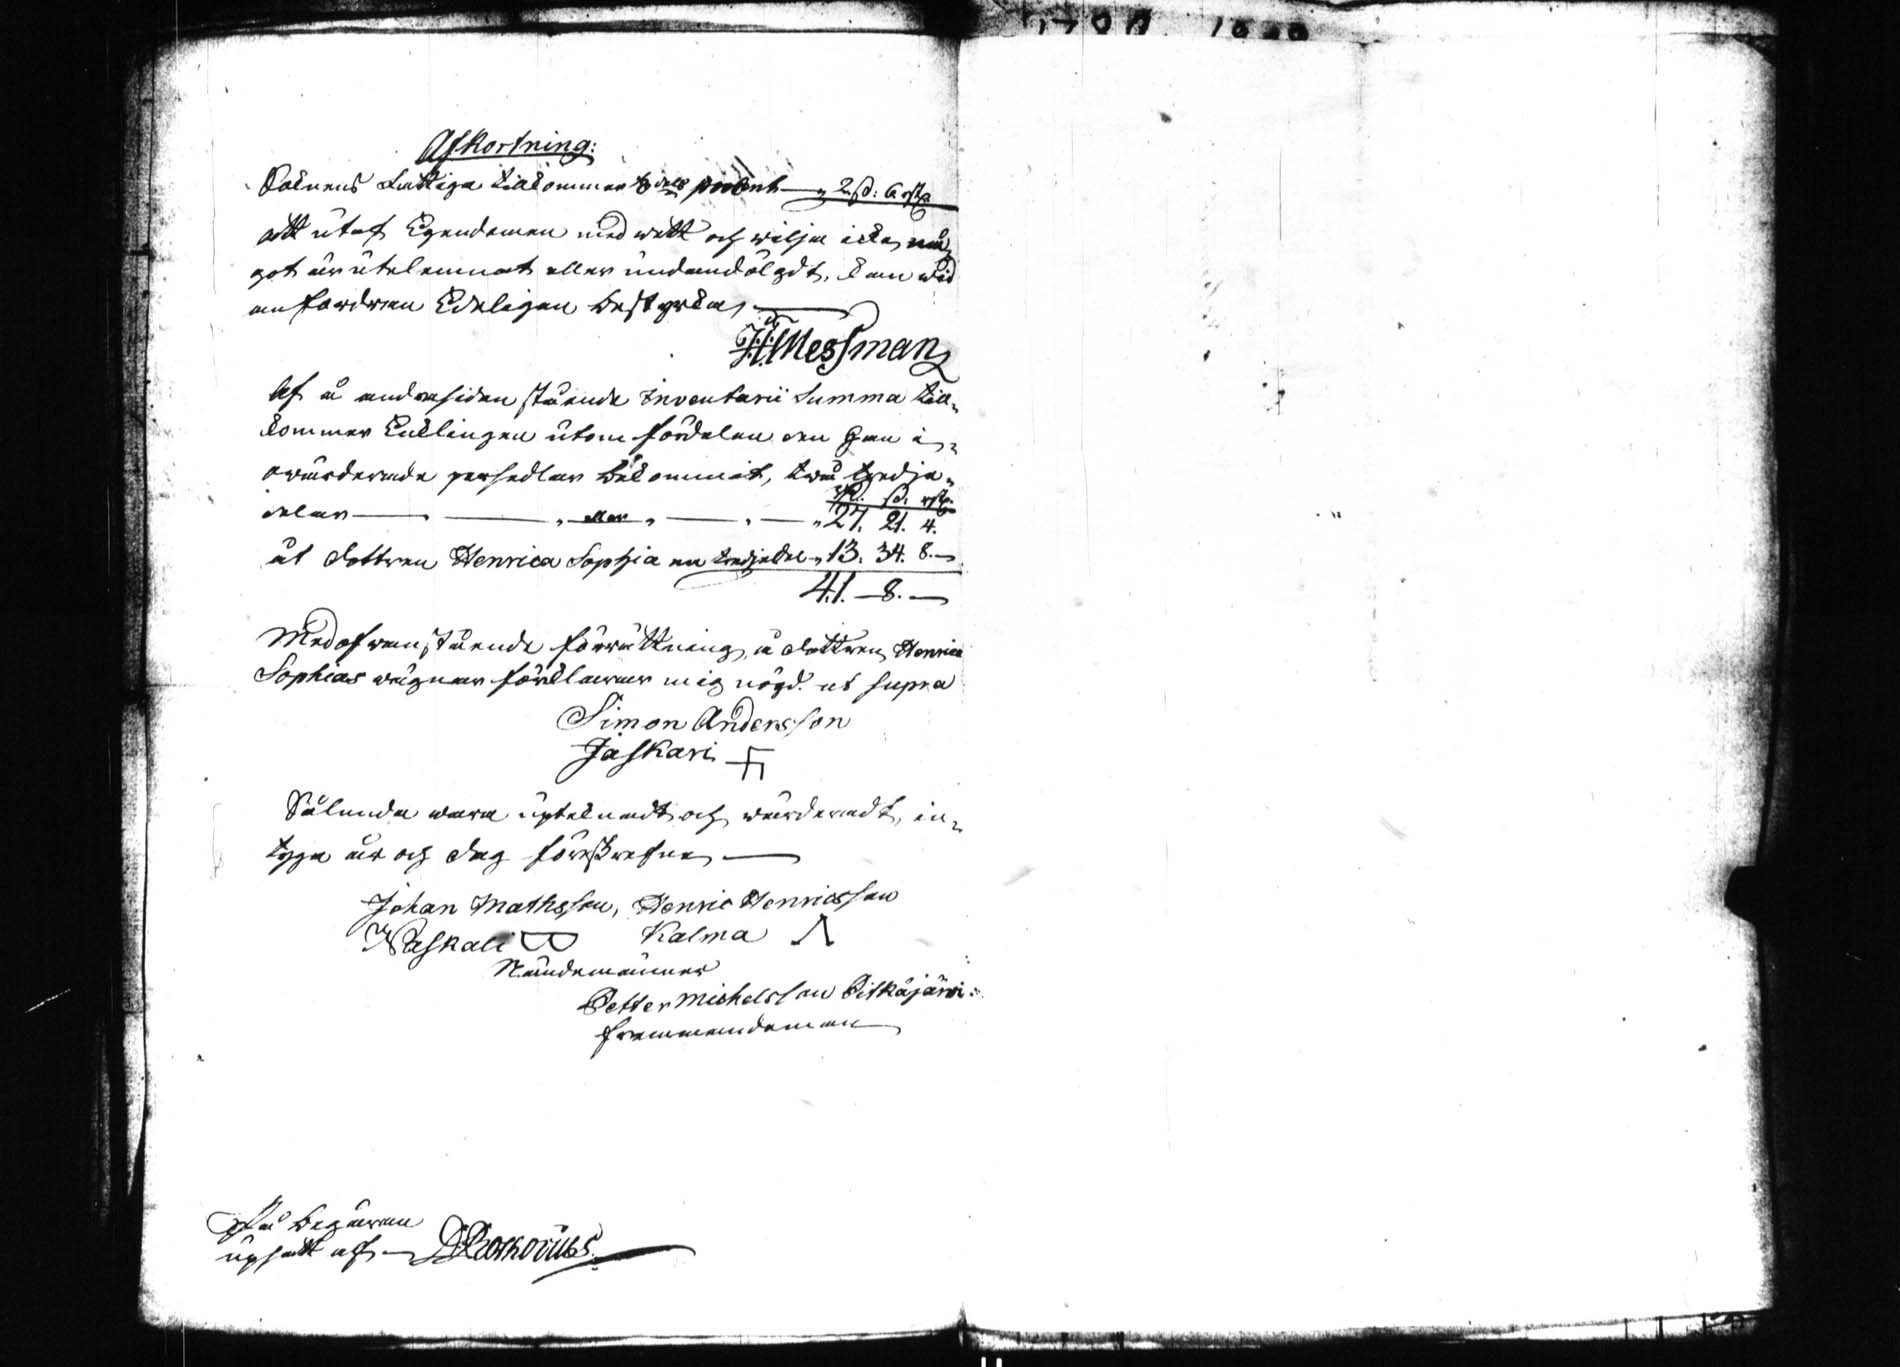 Afkortning:
Soknens Fattiga tilkommer 1/8 dels procent — „ 2 ß: 6 rst
att utaf Egendomen med wett och wilja icke nå-
got är utelemnat eller undandölgdt, kan wid
anfordran Edeligen bestyrka, —
H: Messman
Af å andra sidan stående Inventarii Summa till-
kommer Enklingen utom fördelen den han i
owärderade persedlar bekommit, twå tredje-
Rd. ß. rst.
delar — — „ eller „ — „ — „ 27. 21. 4.
åt dottren Henrica Sophia en tredjedel „ 13. 34. 8. —
41. — 8. —
Med ofwanstående förrättning, å dottren Henrica
Sophias wägnar förklarar mig nögd. ut supra
Simon Andersson
Jaskari
Sålunda wara uptecknadt och wärderadt, in-
tyga år och dag förrskrefne —
Johan Mathsson, Henric Henricsson
Kaskali Kalma
Nämdemänner
Petter Michelsson Pitkäjärwi
fremmandeman
På begäran
upsatt af —